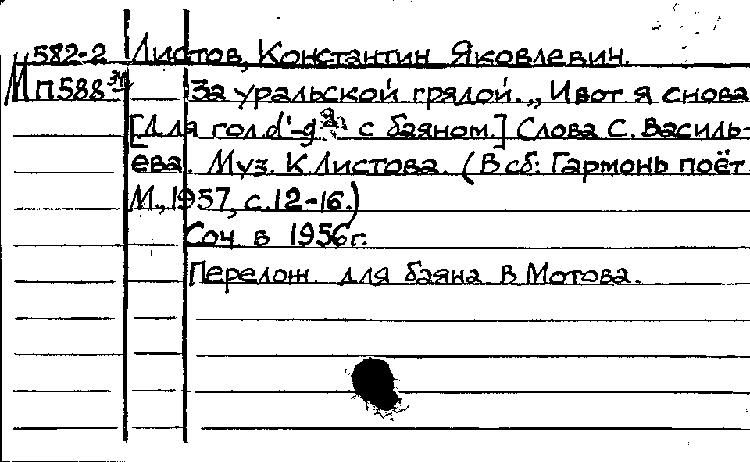 582-2 Листов, Константин Яковлевич.
М П588 За уральской грядой. „Ивот я снова
[Для гол. d'-g² с баяном.] Слова С. Василь-
ева. Муз. К Листова. (В сб: Гармонь поёт.
М., 1957, с. 12-16.)
Соч в 1956г.
Перелож. для баяна В Мотова.